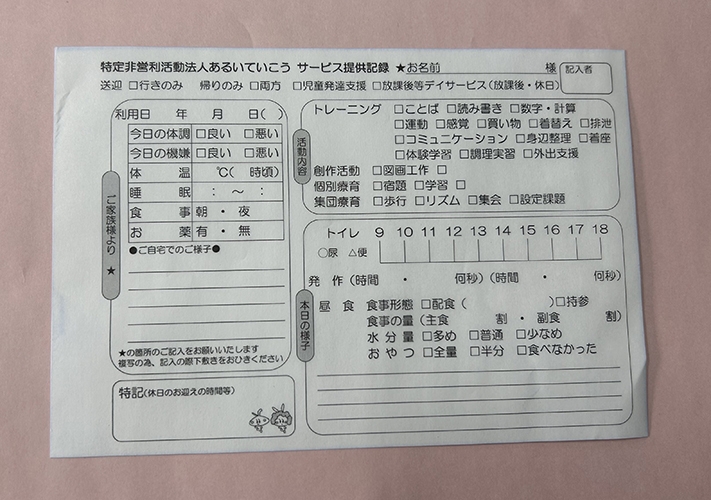 特定非営利活動法人あるいていこう サービス提供記録 ★お名前 様 記入者
送迎 □行きのみ 帰りのみ □両方 □児童発達支援 □放課後等デイサービス(放課後・休日)
ご家族様より ★
利用日 年 月 日( )
今日の体調 □良い □悪い
今日の機嫌 □良い □悪い
体 温 ℃( 時頃)
睡 眠 : ~ :
食 事 朝 ・ 夜
お 薬 有 ・ 無
●ご自宅でのご様子●
★の箇所のご記入をお願いいたします
複写の為、記入の際下敷きをおひきください
特記(休日のお迎えの時間等)
活動内容
トレーニング □ことば □読み書き □数字・計算
□運動 □感覚 □買い物 □着替え □排泄
□コミュニケーション □身辺整理 □着座
□体験学習 □調理実習 □外出支援
創作活動 □図画工作 □
個別療育 □宿題 □学習 □
集団療育 □歩行 □リズム □集会 □設定課題
本日の様子
トイレ 9 10 11 12 13 14 15 16 17 18
○尿 △便
発 作 (時間 ・ 何秒) (時間 ・ 何秒)
昼 食 食事形態 □配食( )□持参
食事の量 (主食 割 ・ 副食 割)
水 分 量 □多め □普通 □少なめ
お や つ □全量 □半分 □食べなかった